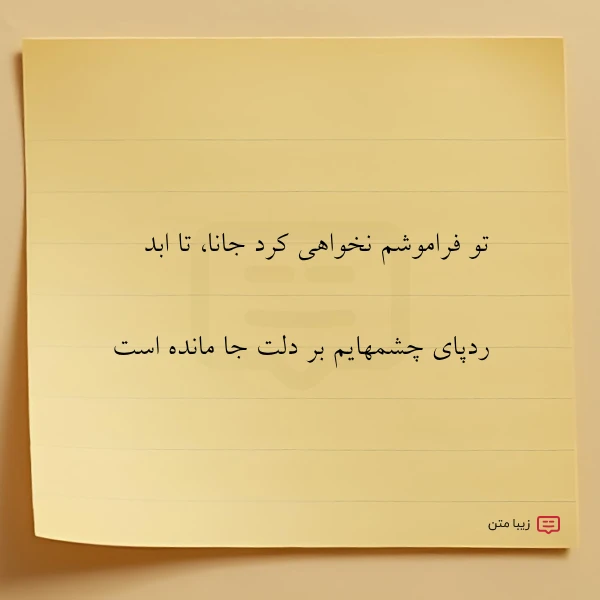 تو فراموشم نخواهی کرد جانا، تا ابد
ردپای چشمهایم بر دلت جا مانده است
زیبا متن